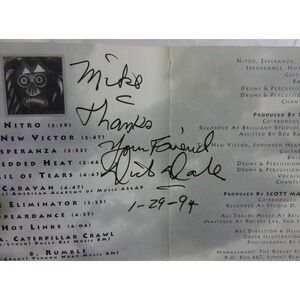 Mike
Thanks
Your Friend
Dick Dale
1-29-94
NITRO (3:19)
NEW VICTOR (3:47)
ESPERANZA
SHREDDED HEAT
TRAIL OF TEARS
CARAVAN (4:47)
AMERICAN ACADEMY OF MUSIC ASCAP
ELIMINATOR
SPEARDANCE
HOT LINKS
CATERPILLAR CRAWL
RUMBLE
NITRO, ESPERANZA,
SPEARDANCE, HO
GUITA
BA
DRUMS & PERCUSSION
CHAN
PRODUCED BY
CO-PRODUCE
RECORDED AT BRILLIANT STUDIO
ASSISTED BY ROB BE
NEW VICTOR, SHREDDED HEA
GUITA
DRUMS & PERCUSSI
DRUMS & PERCUSSI
VOCALS
CHANT
PRODUCED BY SCOTT MA
CO-PRODUCED
RECORDED AT STUDIO D,
ALL TRACKS MIXED AT BR
MASTERED AT ROCKET LAB, SAN
ART DIRECTION & DESIGN
COVER ILLUSTRATION
PHOTOGRAPHY BY
MANAGEMENT: THE ROBERT
P.O. BOX 667, SUNSET BEAC